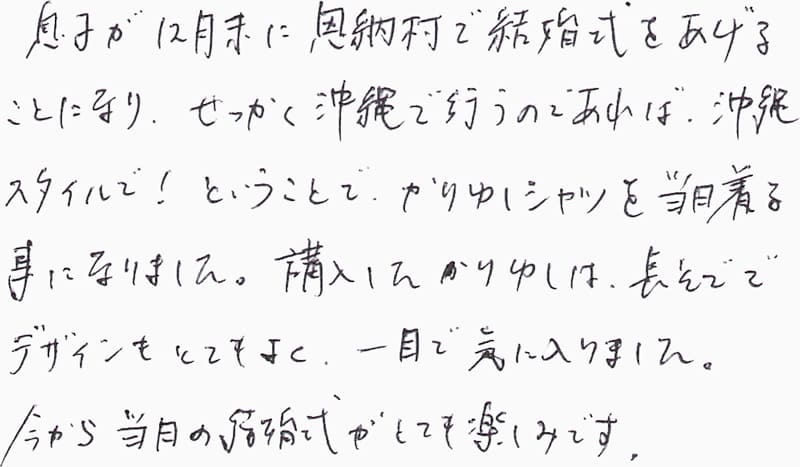 息子が12月末に恩納村で結婚式をあげる
ことになり、せっかく沖縄で行うのであれば、沖縄
スタイルで！ということで、かりゆしシャツを当日着る
事になりました。購入したかりゆしは、長そでで
デザインもとてもよく、一目で気に入りました。
今から当日の結婚式がとても楽しみです。